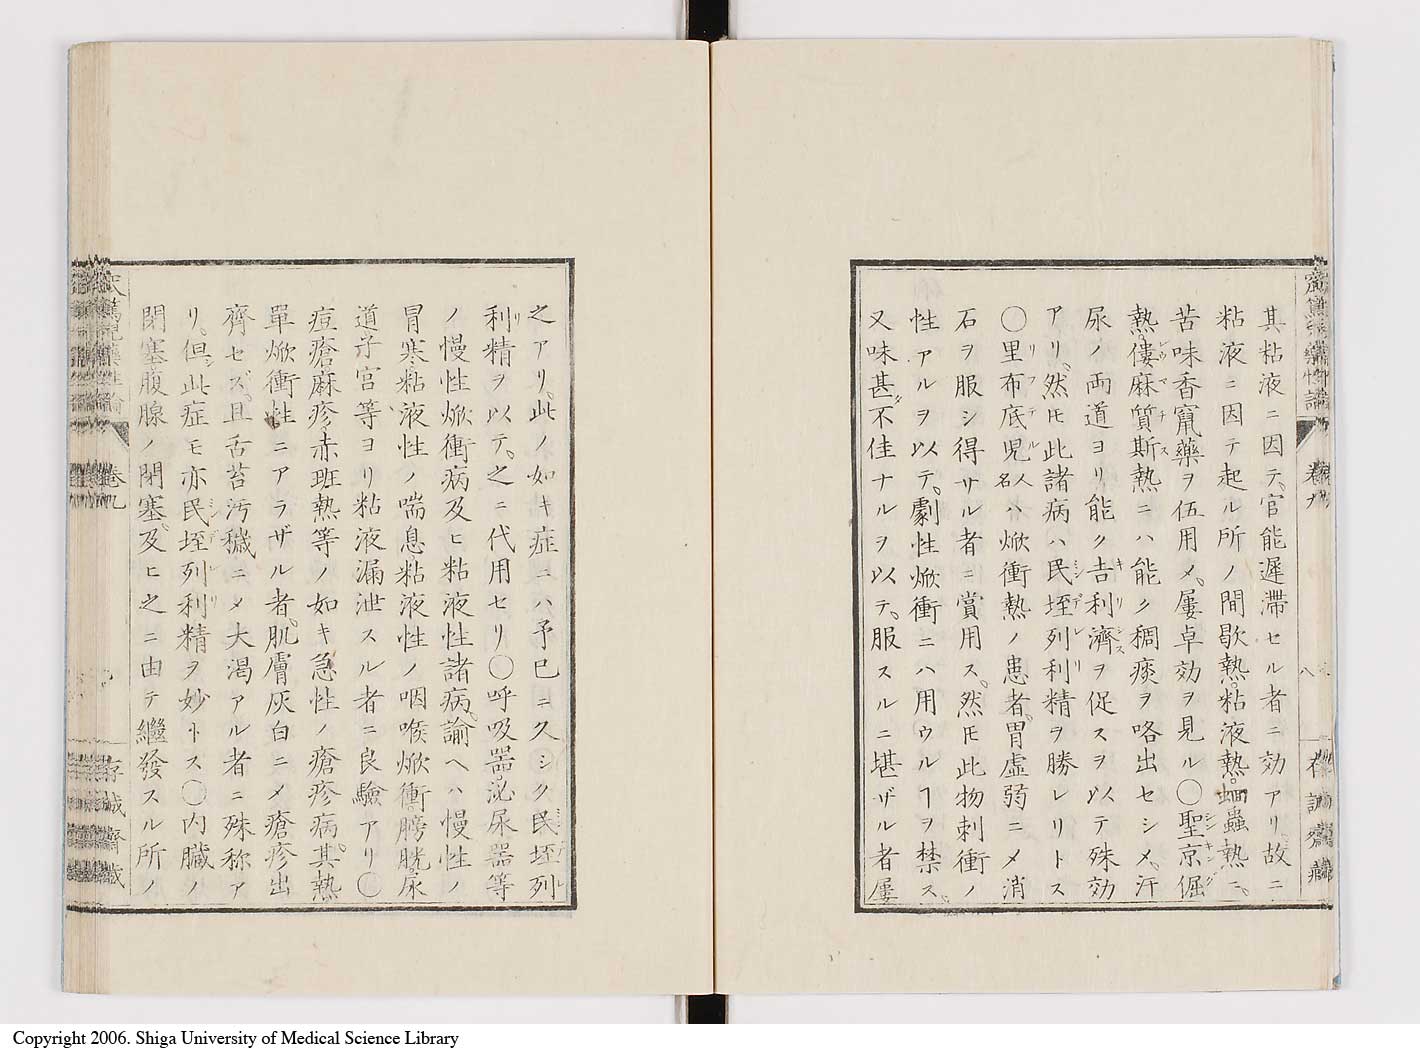 其粘液ニ因テ官能遲滯セル者ニ効アリ故ニ
粘液ニ因テ起ル所ノ間歇熱粘液熱蛔蟲熱ニ
苦味香竄藥ヲ伍用〆屢卓効ヲ見ル〇聖京倔
熱僂麻質斯熱ニハ能ク稠痰ヲ咯出セシメ汗
尿ノ両道ヨリ能ク吉利濟ヲ促スヲ以テ殊効
アリ然𪜈此諸病ハ民垤列利精ヲ勝レリトス
〇里布底児人名ハ焮衝熱ノ患者胃虛弱ニ〆消
石ヲ服シ得サル者ニ賞用ス然𪜈此物刺衝ノ
性アルヲ以テ劇性焮衝ニハ用ウルヿヲ禁ス
又味甚不佳ナルヲ以テ服スルニ堪ザル者屢
卷九
八
之アリ此ノ如キ症ニハ予已ニ久シク民垤列
利精ヲ以テ之ニ代用セリ〇呼吸器泌尿器等
ノ慢性焮衝病及ヒ粘液性諸病諭ヘハ慢性ノ
冒寒粘液性ノ喘息粘液性ノ咽喉焮衝膀胱尿
道子宮等ヨリ粘液漏泄スル者ニ良驗アリ〇
痘瘡麻疹赤班熱等ノ如キ急性ノ瘡疹病其熱
單焮衝性ニアラザル者肌膚灰白ニ〆瘡疹出
齊セズ且舌苔汚穢ニ〆大渇アル者ニ殊称ア
リ但此症モ亦民垤列利精ヲ妙トス〇内臟ノ
閉塞腹腺ノ閉塞及ヒ之ニ由テ繼發スル所ノ
卷九
Copyright 2006. Shiga University of Medical Science Library